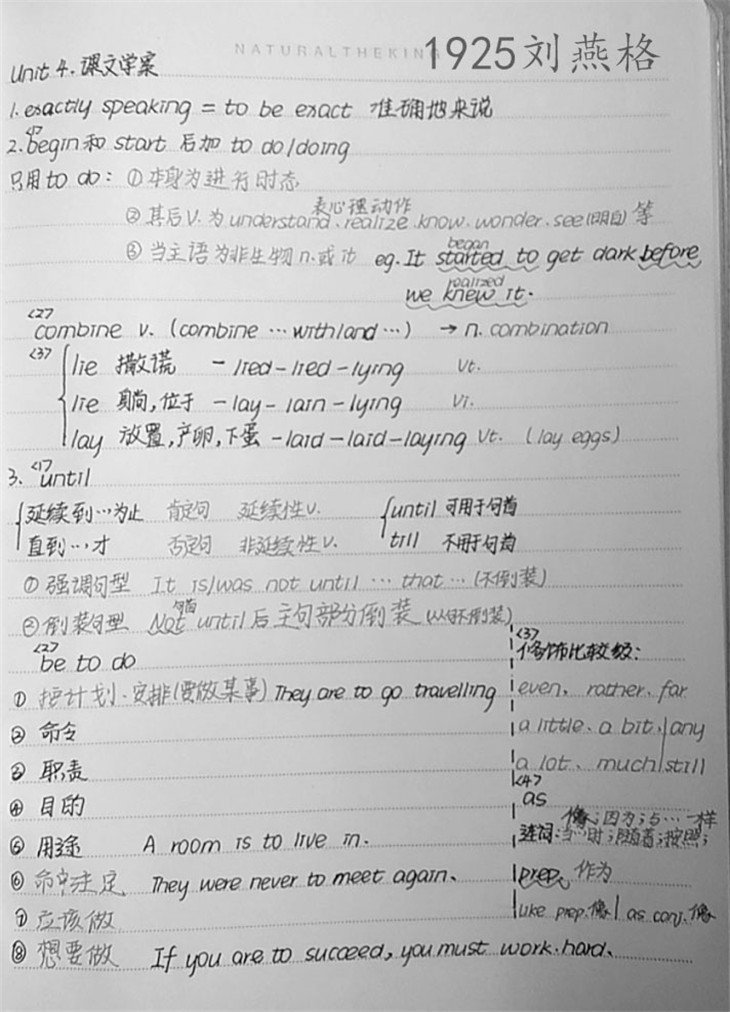 NATURALTHEKING
1925刘燕格
Unit 4. 课文学案
1. exactly speaking = to be exact 准确地来说
2.<1> begin 和 start 后加 to do/doing
只用 to do: ① 本身为进行时态
表心理动作
② 其后V. 为 understand、realize.know.wonder.see(明白) 等
began
③ 当主语为非生物n.或it eg. It started to get dark before
realized
we knew it.
<2> combine v. (combine … with/and …) → n. combination
<3> lie 撒谎 - lied - lied - lying Vt.
lie 躺, 位于 - lay - lain - lying Vi.
lay 放置, 产卵, 下蛋 - laid - laid - laying Vt. (lay eggs)
3. <1> until
延续到…为止 肯定句 延续性V. until 可用于句首
直到…才 否定句 非延续性V. till 不用于句首
① 强调句型 It is/was not until … that … (不倒装)
句首
② 倒装句型 Not until 后主句部分倒装 (从句不倒装)
<2> be to do
① 按计划.安排(要做某事) They are to go travelling
② 命令
③ 职责
④ 目的
⑤ 用途 A room is to live in.
⑥ 命中注定 They were never to meet again.
⑦ 应该做
⑧ 想要做 If you are to succeed, you must work hard.
<3> 修饰比较级:
even, rather, far
a little、a bit, any
a lot、much still
<4> as
像; 因为; 与…一样
连词: 当…时; 随着; 按照;
prep. 作为
like prep. 像 as conj. 像